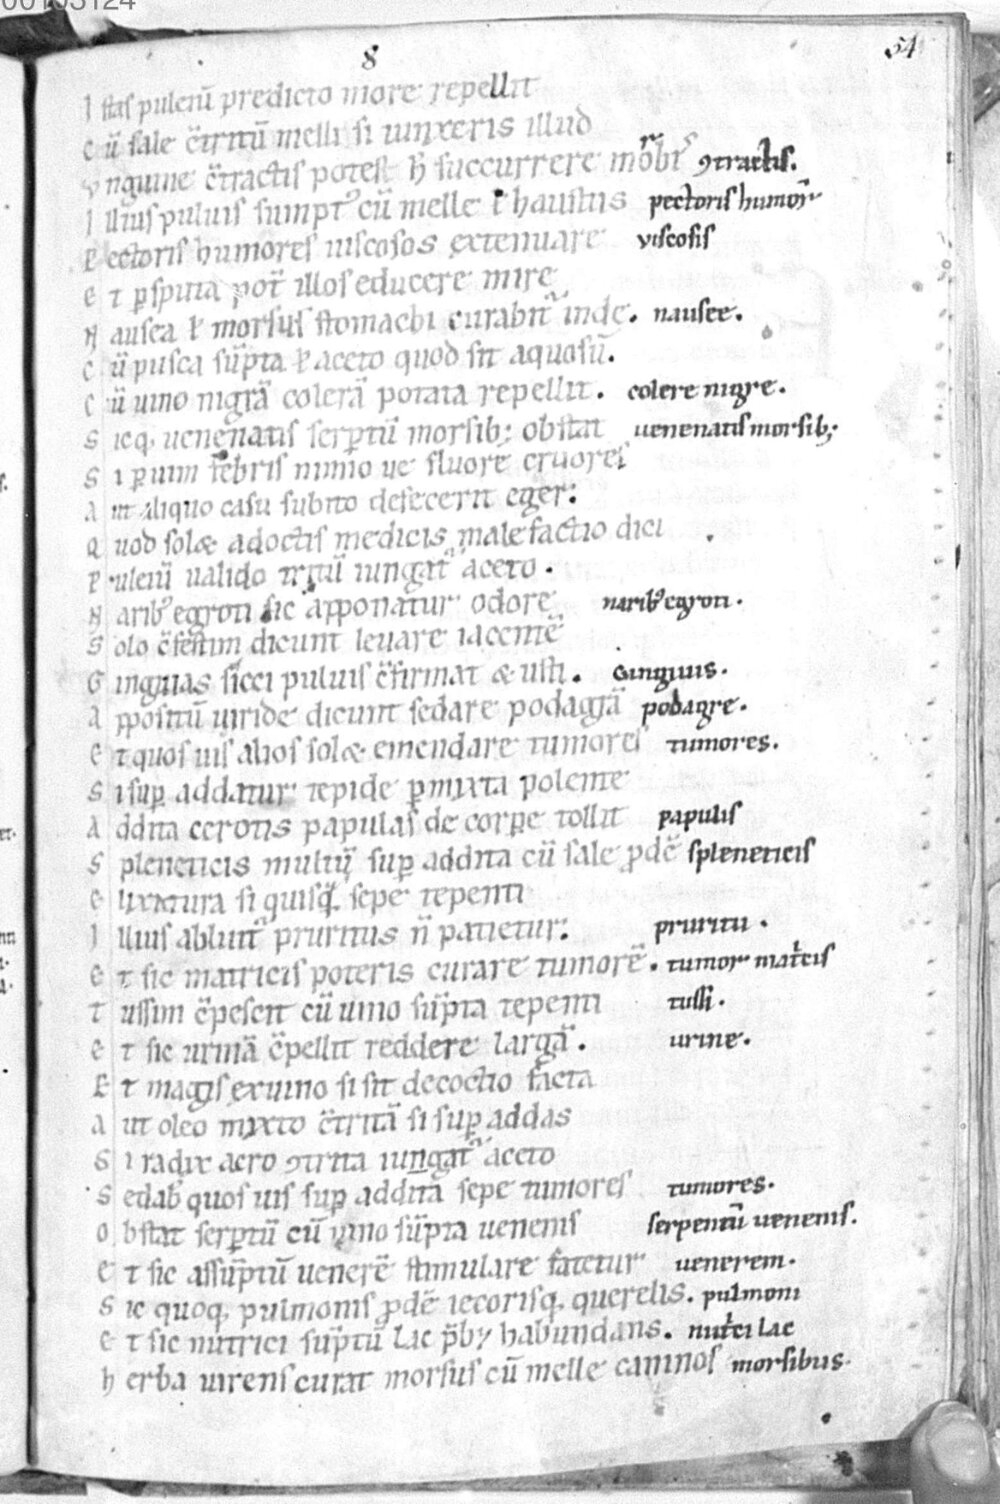 00105124
8
54
I stas puleiū predicto more repellit
C ū sale c̄tritū melli si iunxeris illud
V nguine c̄tractis potest h̄ succurrere mōbris ꝯtractis.
I llius puluis sumptꝰ cū melle ł haustus pectoris humor̄
P ectoris humores uiscosos extenuare viscosis
E t ꝑ sputa pot̄ illos educere mire
N ausea ł morsus stomachi curabit̄ inde. nausee.
C ū pusca sūpta ł aceto quod sit aquosū.
C ū uino nigrā colerā potata repellit. colere nigre.
S icq, uenenatis serpētū morsib; obstat uenenatis morsib;
S i ꝑ uim febris nimio ue fluore cruoris
A ut aliquo casu subito defecerit eger:
Q uod solæ a doctis medicis malefactio dici
P uleiū ualido tritū iungat̄ aceto.
N aribꝰ egroti sic apponatur odore naribꝰ egroti.
S olo c̄festim dicunt leuare iacentē
G inguas sicci puluis c̄firmat & usti. Ginguiis.
A ppositū uiride dicunt sedare podagrā podagre.
E t quos uis alios solæ emendare tumores tumores.
S i suꝑ addatur tepide ꝑmixta polente
A ddita cerotis papulas de corꝑe tollit papulis
S pleneticis multū suꝑ addita cū sale ꝓdē spleneticis
E lixatura si quisq sepe tepenti
I llius abluit̄ pruritus n̄ patietur: pruritu.
E t sic matricis poteris curare tumorē. tumor matcis
T ussim c̄pescit cū uino sūpta tepenti tussi.
E t sic urinā c̄pellit reddere largā. urine.
E t magis ex uino si sit decoctio facta
A ut oleo mixto c̄tritā si suꝑ addas
S i radix acro ꝯtrita iungat̄ aceto
S edab̄ quos uis suꝑ additā sepe tumores tumores.
O bstat serpētū cū uino sūpta uenenis serpentū uenenis.
E t sic assūptū uenerē stimulare fatetur uenerem.
S ic quoq, pulmonis ꝓdē iecorisq, querelis. pulmoni
E t sic nutrici sūptū lac p̄by habundans. nutci lac
H erba uirens curat morsus cū melle caninos morsibus.